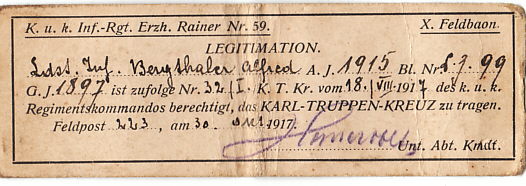 K. u. k. Inf.-Rgt. Erzh. Rainer Nr. 59. X. Feldbaon.
LEGITIMATION.
Ldst. Inf. Bergthaler Alfred A. J. 1915 Bl. Nr. 99
G. J. 1897 ist zufolge Nr. 32/I. K. T. Kr. vom 18./VIII 1917 des k. u. k.
Regimentskommandos berechtigt, das KARL-TRUPPEN-KREUZ zu tragen.
Feldpost 223, am 30. 1917.
Unt. Abt. Kmdt.